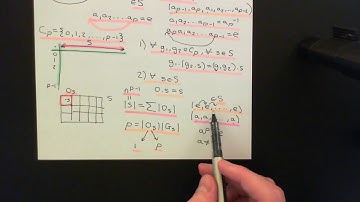 a₁,a₂...aₚ=e
(aₚ₋₁,aₚ,a₁,a₂,...,aₚ₋₂)
a₁,a₂...aₚ₋₁=aₚ⁻¹
Cₚ={0,1,2,...,p-1}
S
0
1
2
p-1
1) ∀ g₁,g₂∈Cₚ, ∀ s∈S
g₁.(g₂.s)=(g₁g₂).s
2) ∀ s∈S
0.s=s
Oₛ
S
|S|=∑|Oₛ|
p=|Oₛ||Gₛ|
1 p
∈S
(e,e,...,e)
(a,a,...,a)